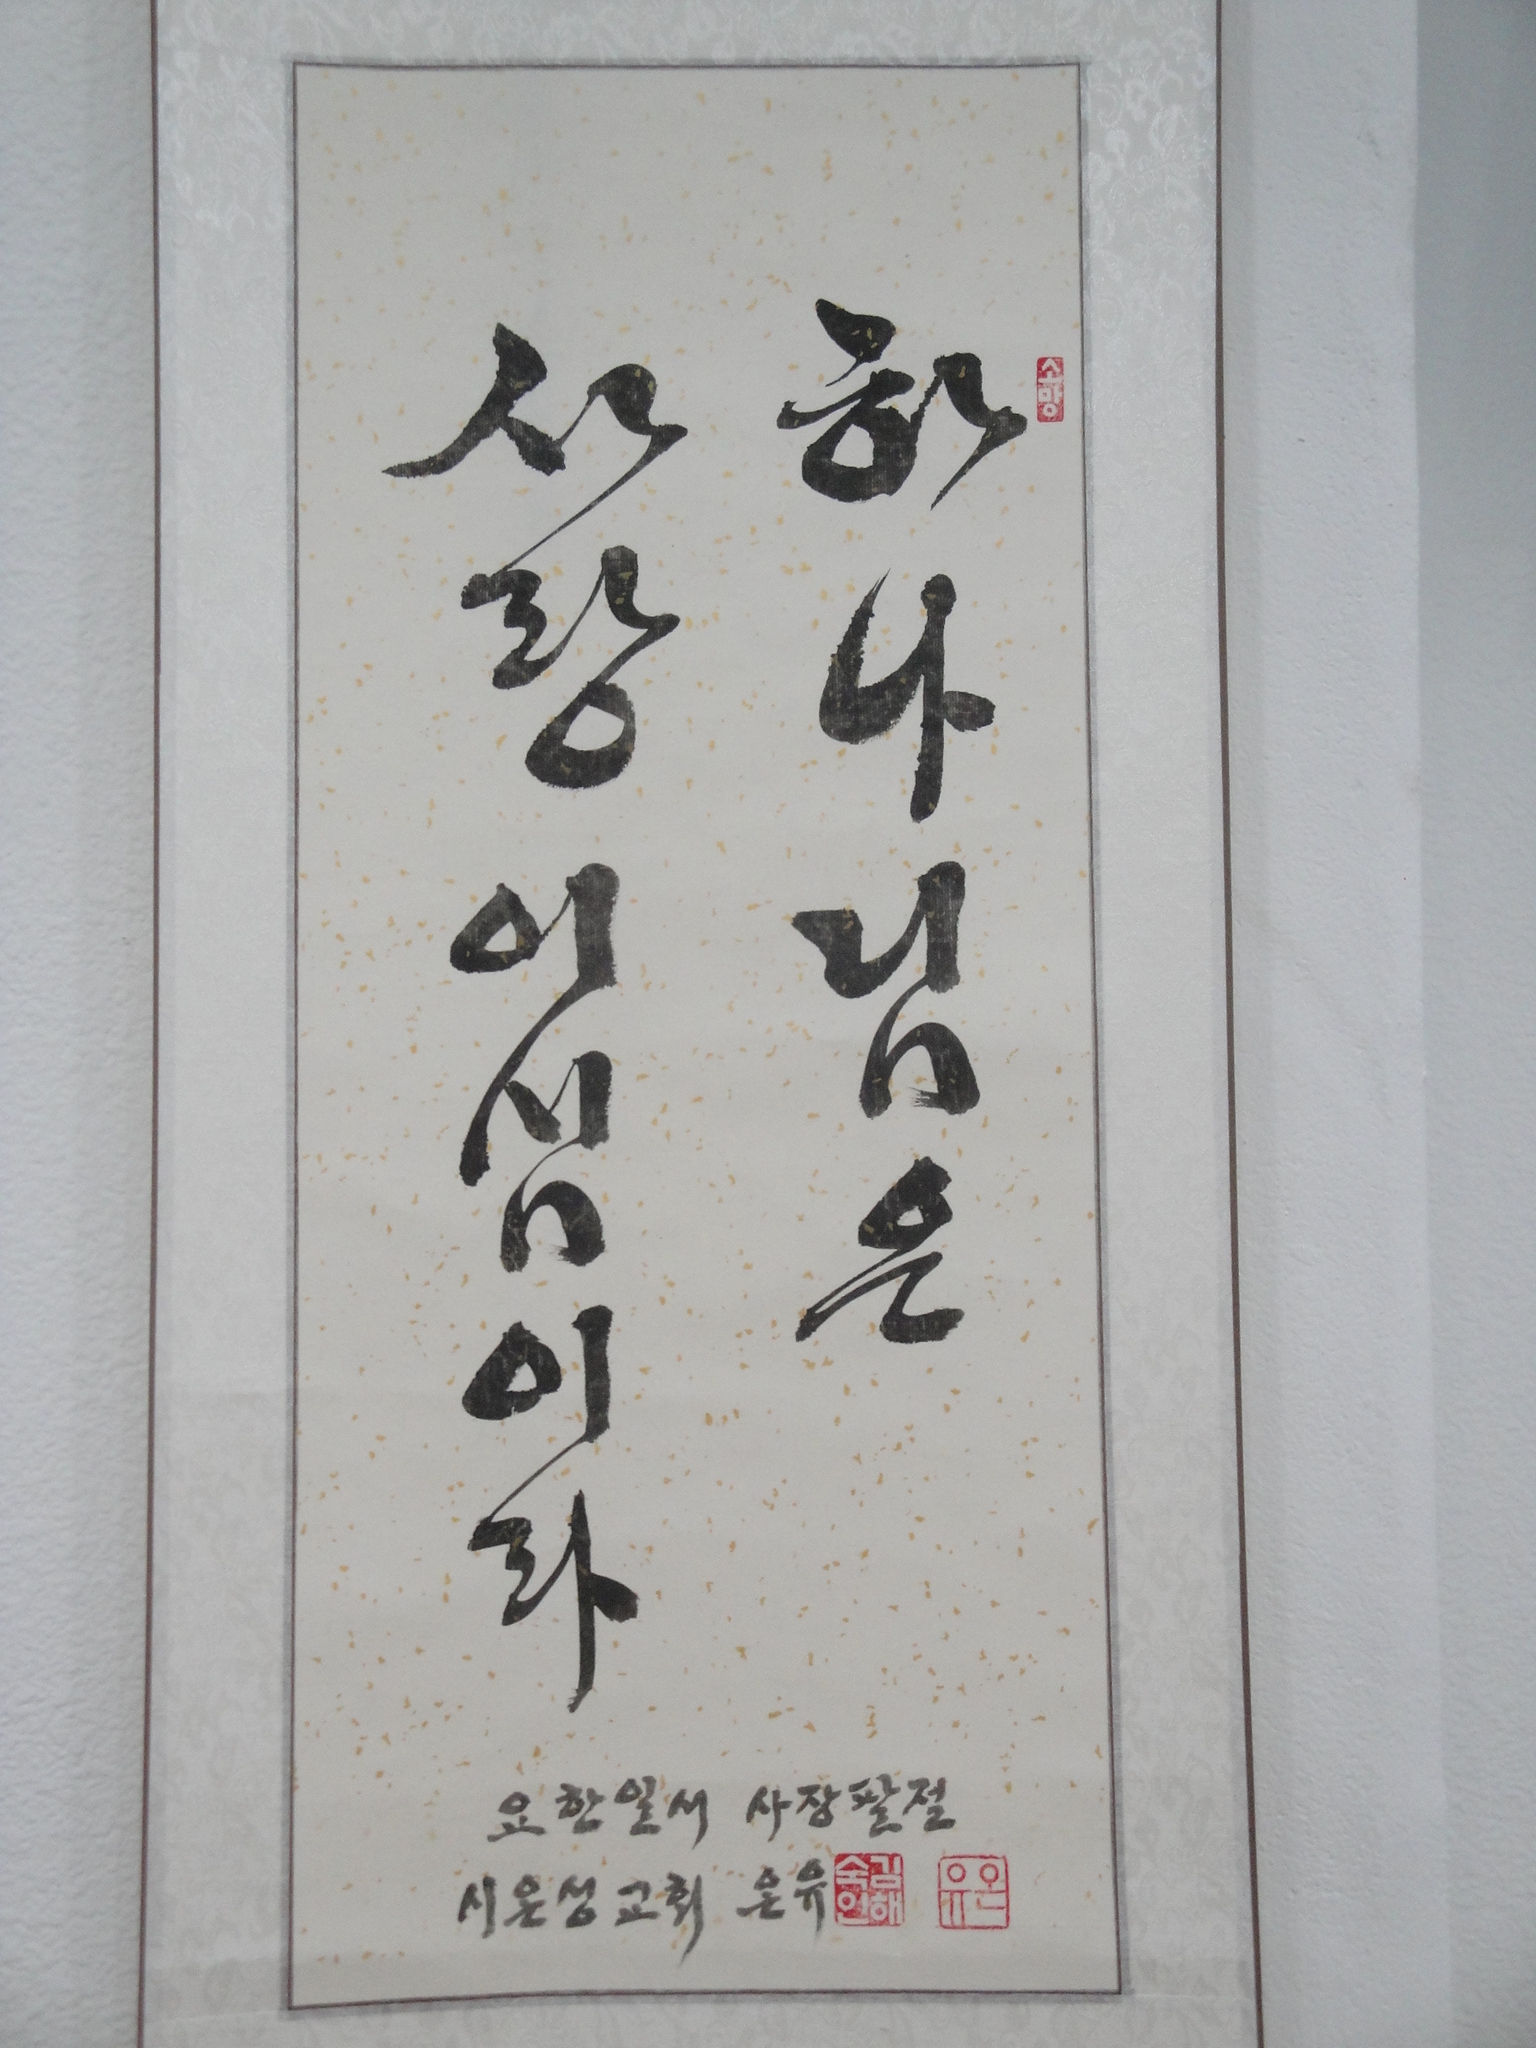 소망
하나님은
사랑이심이라
요한일서 사장팔절
시온성교회 온유
김해
숙인
온유